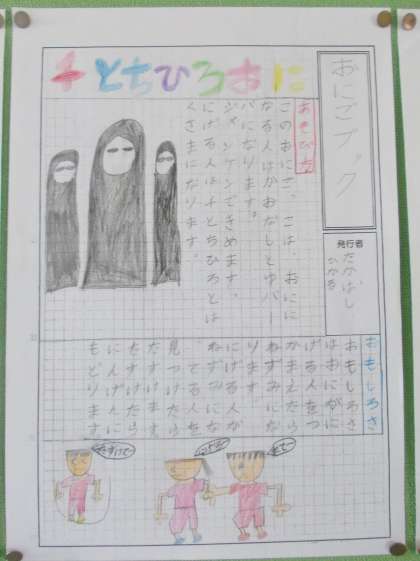 おにごブック
発行者
たかばし
ひかる
千とちひろおに
あそび方
このおにごっこは、おにに
なる人はかおなしとゆバー
バになります。
ジャンケンできめます。
にげる人は千とちひろとは
くさまになります。
おもしろさ
おもしろさ
はおにがに
げる人をつ
かまえたら
ねずみにな
ります
にげる人が
ねずみにな
ってる人を
見つけたら
たすけます
たすけたら
にんげんに
もどります
まてー
たすけてー